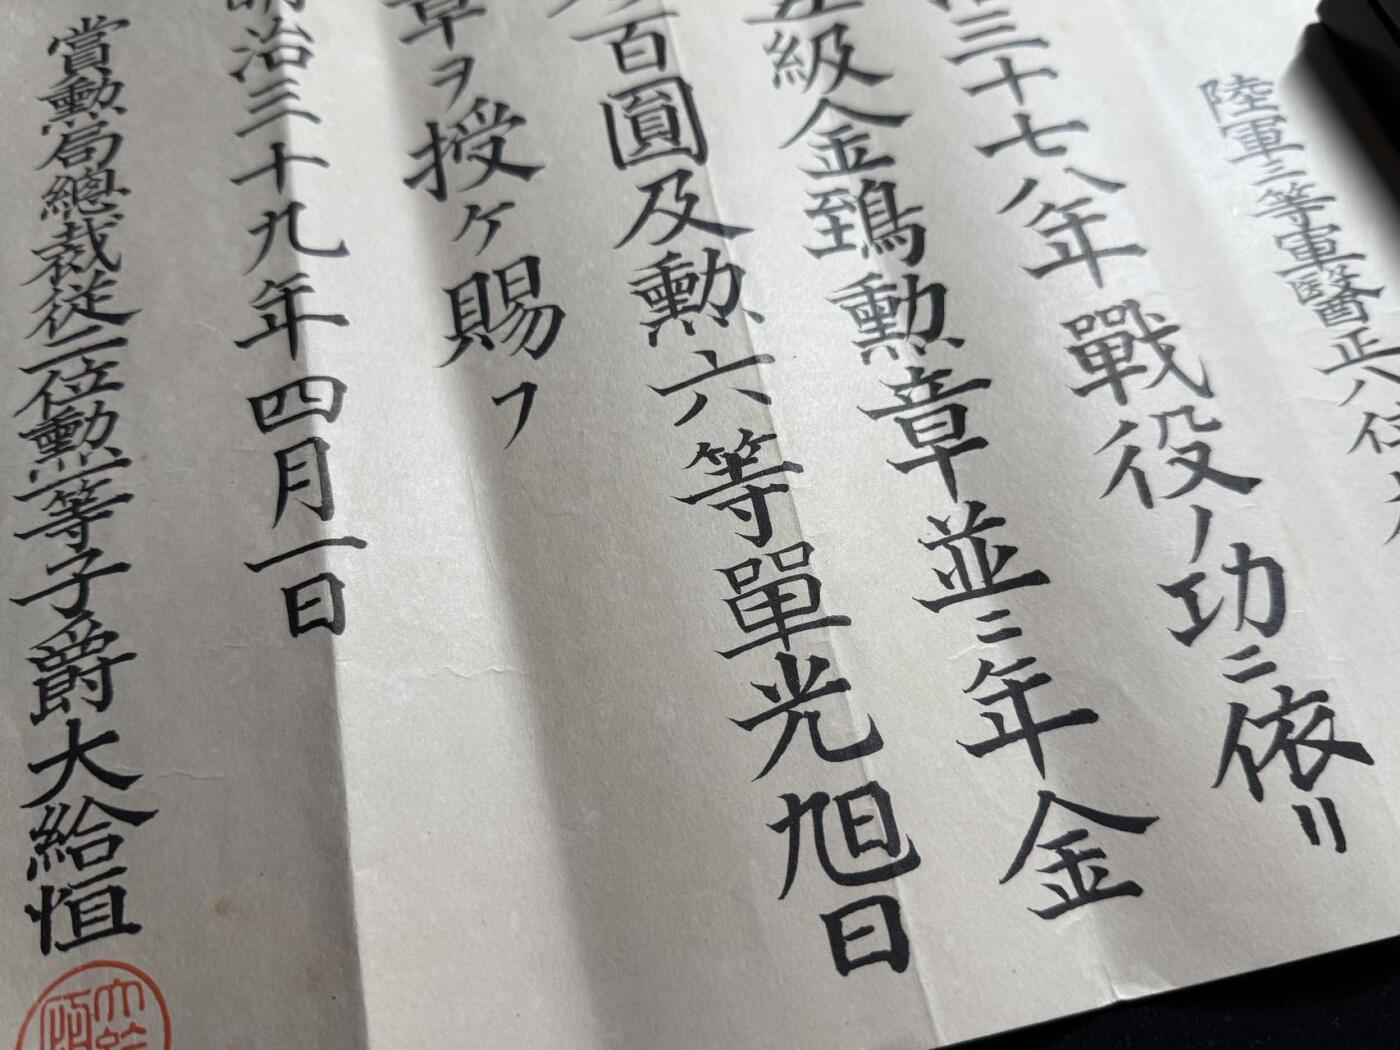 陸軍二等軍醫正八位
三十七八年戰役ノ功ニ依リ
五級金鵄勳章並ニ年金
百圓及勳六等單光旭日
章ヲ授ケ賜フ
明治三十九年四月一日
賞勳局總裁從二位勳一等子爵大給恒